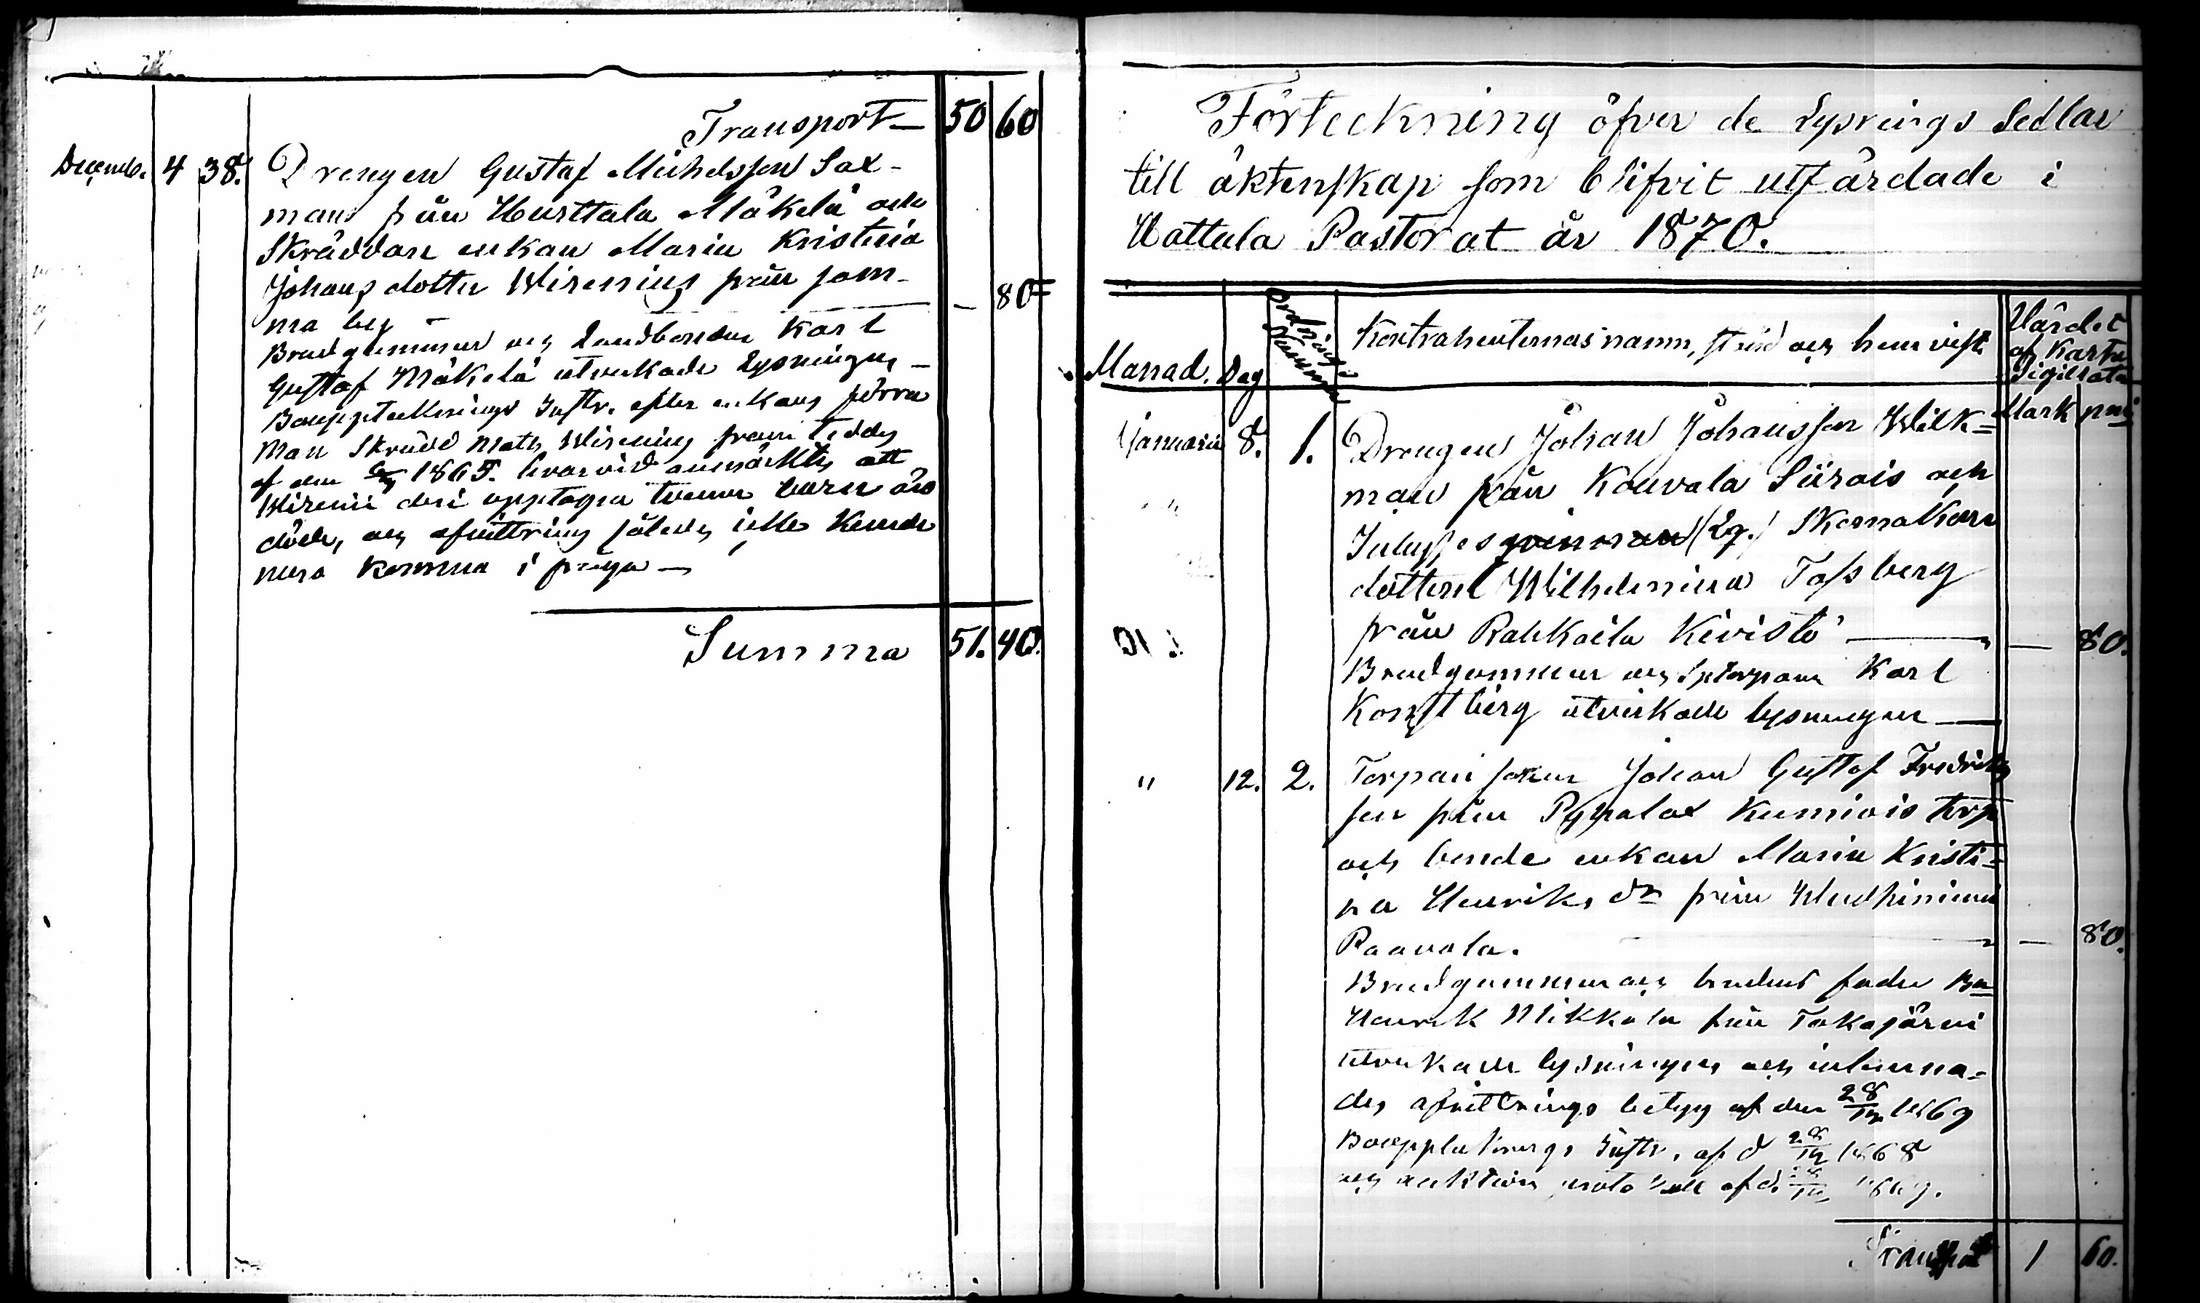 Transport 50 60
Decemb. 4 38. Drengen Gustaf Michelsson Sax-
man från Hurttala Mäkelä och
Skräddare enkan Maria Kristina
Johans dotter Wirenius från sam-
ma by — — 80
Brudgummen och Landbonden Karl
Gustaf Mäkelä utverkade Lysningen —
Bouppteknings Instr. efter enkans förra
Man Skrädd Math Wirenius från
af den 1865. hvarvid anmärktes att
Wirenii deri upptagna tvenne barn äro
döde, och afvittring således icke kunde
mera komma i fråga —
Summa 51. 40.
Förteckning öfver de Lysnings Sedlar
till äktenskap som blifvit utfärdade i
Hattula Pastorat år 1870.
Månad. Dag Ordnings Nummer Kontrahenternas namn, stånd och hemvist. Värdet af Karta Sigillata
Mark pni
Januarii 8. 1. Drengen Johan Johansson Wilk=
man från Kouvala Siirois och
Inhyses qvinnan (Eg.) Skomakare
dottern Wilhelmina Tafsberg
från Rahkoila Kivistö — — 80.
Brudgummen och Karl
Konstberg utverkade lysningen —
" 12. 2. Torpare sonen Johan Gustaf Fredriks
son från Pyhalax Kumiois torp
och bonde enkan Maria Kristi=
na Henriks dr från
Paavola. — — 80.
Brudgummen och brudens fader Bn
Henrik Mikkola från Takajärvi
utverkade lysningen och inlemna=
des afvittrings betyg af den 28/12 1869
Bouppteknings Instr. af d 28/12 1868
och auktions protokoll af d. 1869.
Transport 1 60.